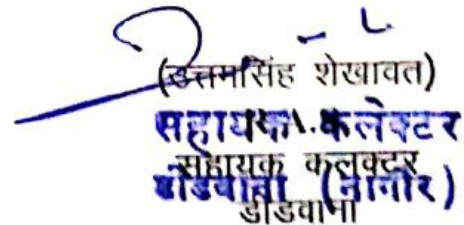 (उत्तमसिंह शेखावत)
सहायक कलेक्टर
सहायक कलक्टर
डीडवाना (नागौर)
डीडवाना